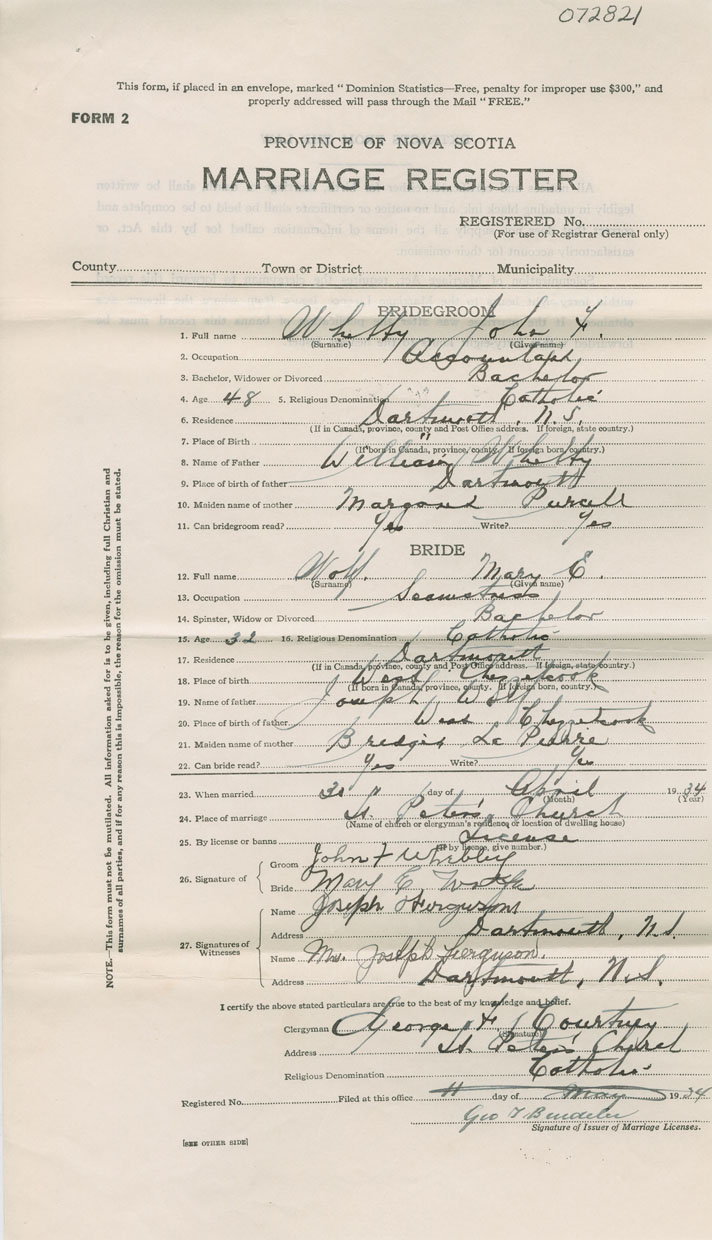 072821
This form, if placed in an envelope, marked "Dominion Statistics—Free, penalty for improper use $300," and
properly addressed will pass through the Mail "FREE."
FORM 2
PROVINCE OF NOVA SCOTIA
MARRIAGE REGISTER
REGISTERED No.
(For use of Registrar General only)
County Town or District Municipality
BRIDEGROOM
1. Full name Whebby John F.
(Surname) (Given name)
2. Occupation Accountant
3. Bachelor, Widower or Divorced Bachelor
4. Age 48 5. Religious Denomination Catholic
6. Residence Dartmouth, N.S.
(If in Canada, province, county and Post Office address. If foreign, state country.)
7. Place of Birth "
(If born in Canada, province, county. If foreign born, country.)
8. Name of Father William Whebby
9. Place of birth of father Dartmouth
10. Maiden name of mother Margaret Purcell
11. Can bridegroom read? Yes Write? Yes
BRIDE
12. Full name Wolf Mary E.
(Surname) (Given name)
13. Occupation Seamstress
14. Spinster, Widow or Divorced Bachelor
15. Age 32 16. Religious Denomination Catholic
17. Residence Dartmouth
(If in Canada, province, county and Post Office address. If foreign, state country.)
18. Place of birth West Chezzetcook
(If born in Canada, province, county. If foreign born, country.)
19. Name of father Joseph Wolf
20. Place of birth of father West Chezzetcook
21. Maiden name of mother La Pierre
22. Can bride read? Yes Write? Yes
23. When married 30 " day of April 1934
(Month) (Year)
24. Place of marriage St. Peter's Church
(Name of church or clergyman's residence or location of dwelling house)
25. By license or banns License
(If by license, give number.)
26. Signature of Groom John F Whebby
Bride Mary E.
27. Signatures of Witnesses Name Joseph Ferguson
Address Dartmouth, N.S.
Name Mrs. Joseph Ferguson.
Address Dartmouth, N.S.
I certify the above stated particulars are true to the best of my knowledge and belief.
Clergyman George F Courtney
(Signature)
Address St. Peter's Church
Religious Denomination Catholic
Registered No. Filed at this office 11 day of May 1934
Geo
Signature of Issuer of Marriage Licenses.
[SEE OTHER SIDE]
NOTE.—This form must not be mutilated. All information asked for is to be given, including full Christian and
surnames of all parties, and if for any reason this is impossible, the reason for the omission must be stated.